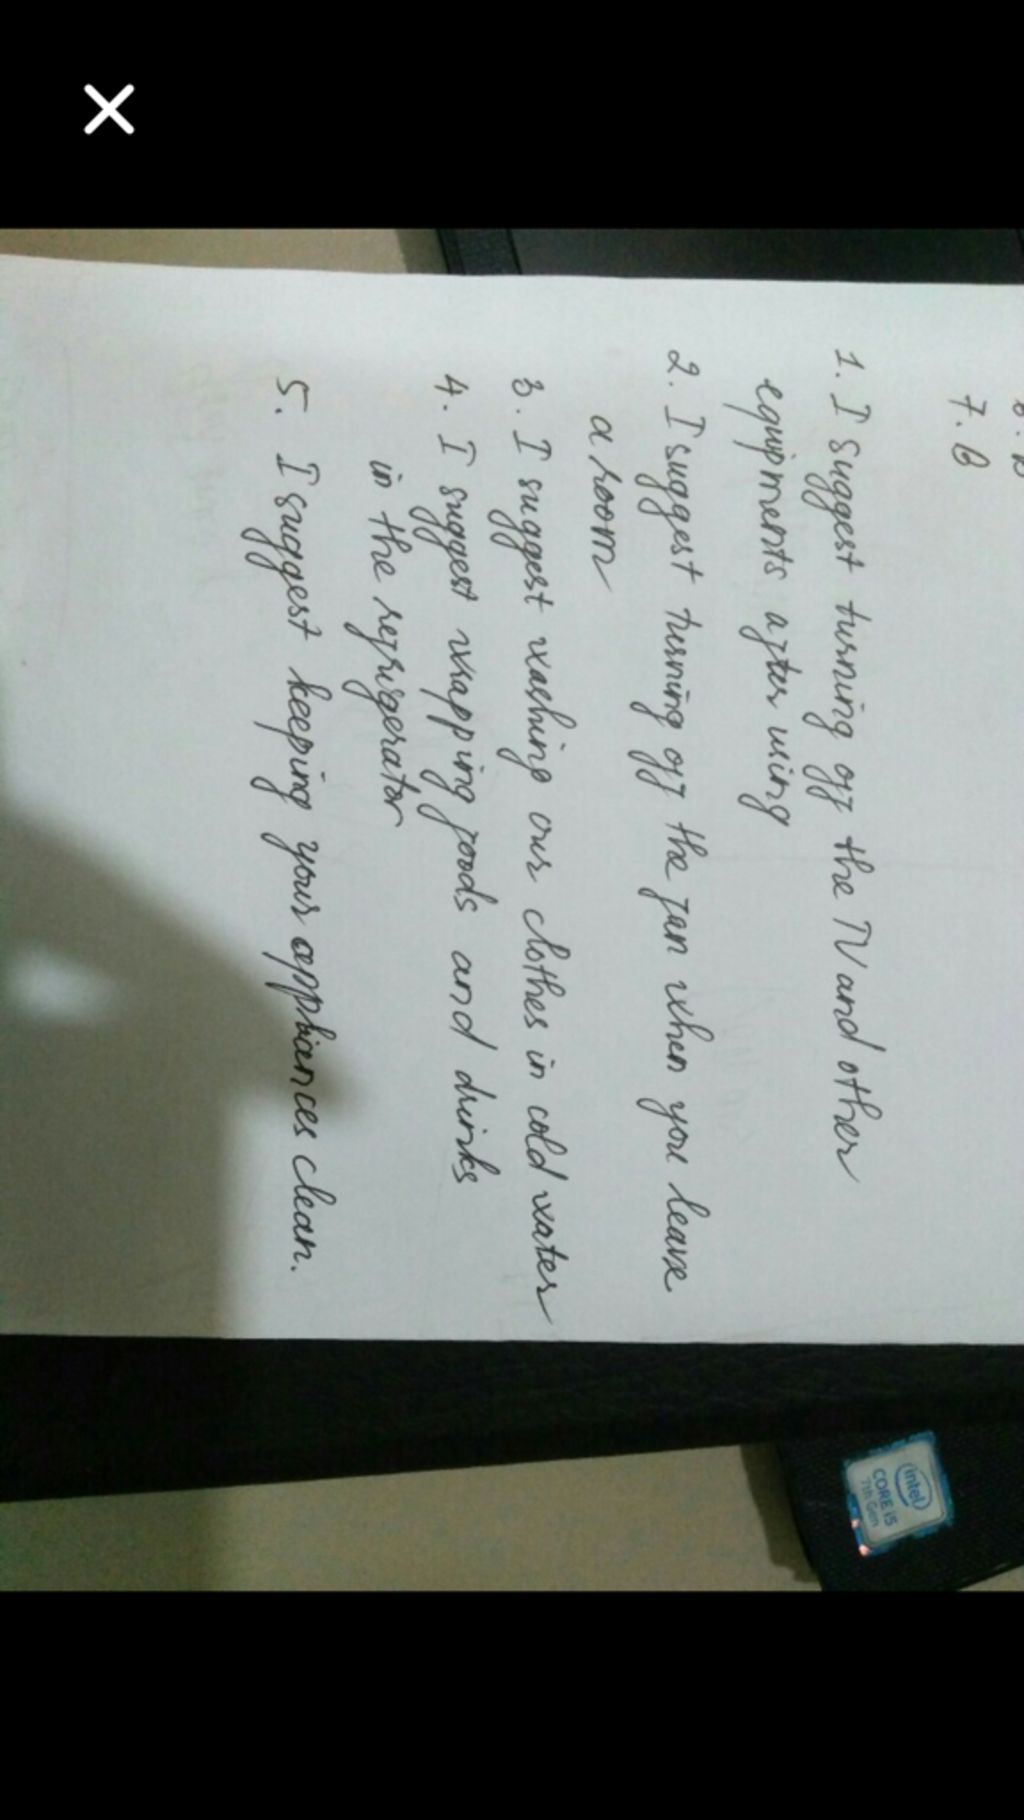 7. B
1. I suggest turning off the TV and other
equipments after using
2. I suggest turning off the fan when you leave
a room
3. I suggest washing our clothes in cold water
4. I suggest wrapping foods and drinks
in the refrigerator
5. I suggest keeping your appliances clean.
intel
CORE i5
7th Gen